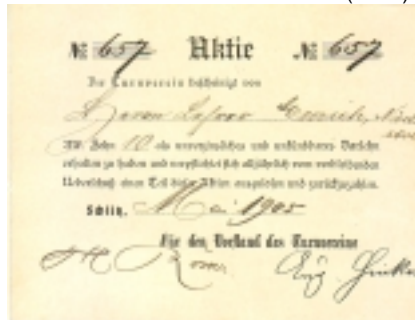 № 657 Aktie № 657
Der Turnverein bescheinigt von
Herrn Lehrer
Mk. Zehn 10 als unverzinsliches und unkündbares Darlehn
erhalten zu haben und verpflichtet sich alljährlich vom verbleibenden
Ueberschuß einen Teil dieser Aktien auszulosen und zurückzuzahlen.
Schlitz, Mai 1905
Für den Vorstand des Turnvereins